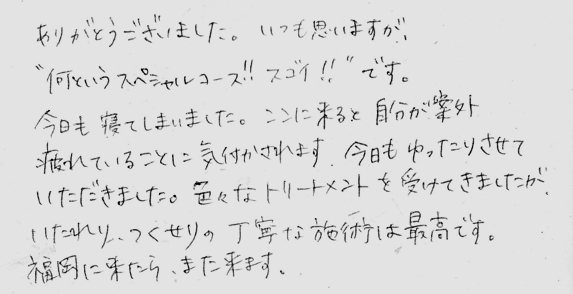 ありがとうございました。いつも思いますが、
"何というスペシャルコース!! スゴイ!!"です。
今日も寝てしまいました。ココに来ると自分が案外
疲れていることに気付かされます。今日もゆったりさせて
いただきました。色々なトリートメントを受けてきましたが、
いたれり、つくせりの丁寧な施術は最高です。
福岡に来たら、また来ます。